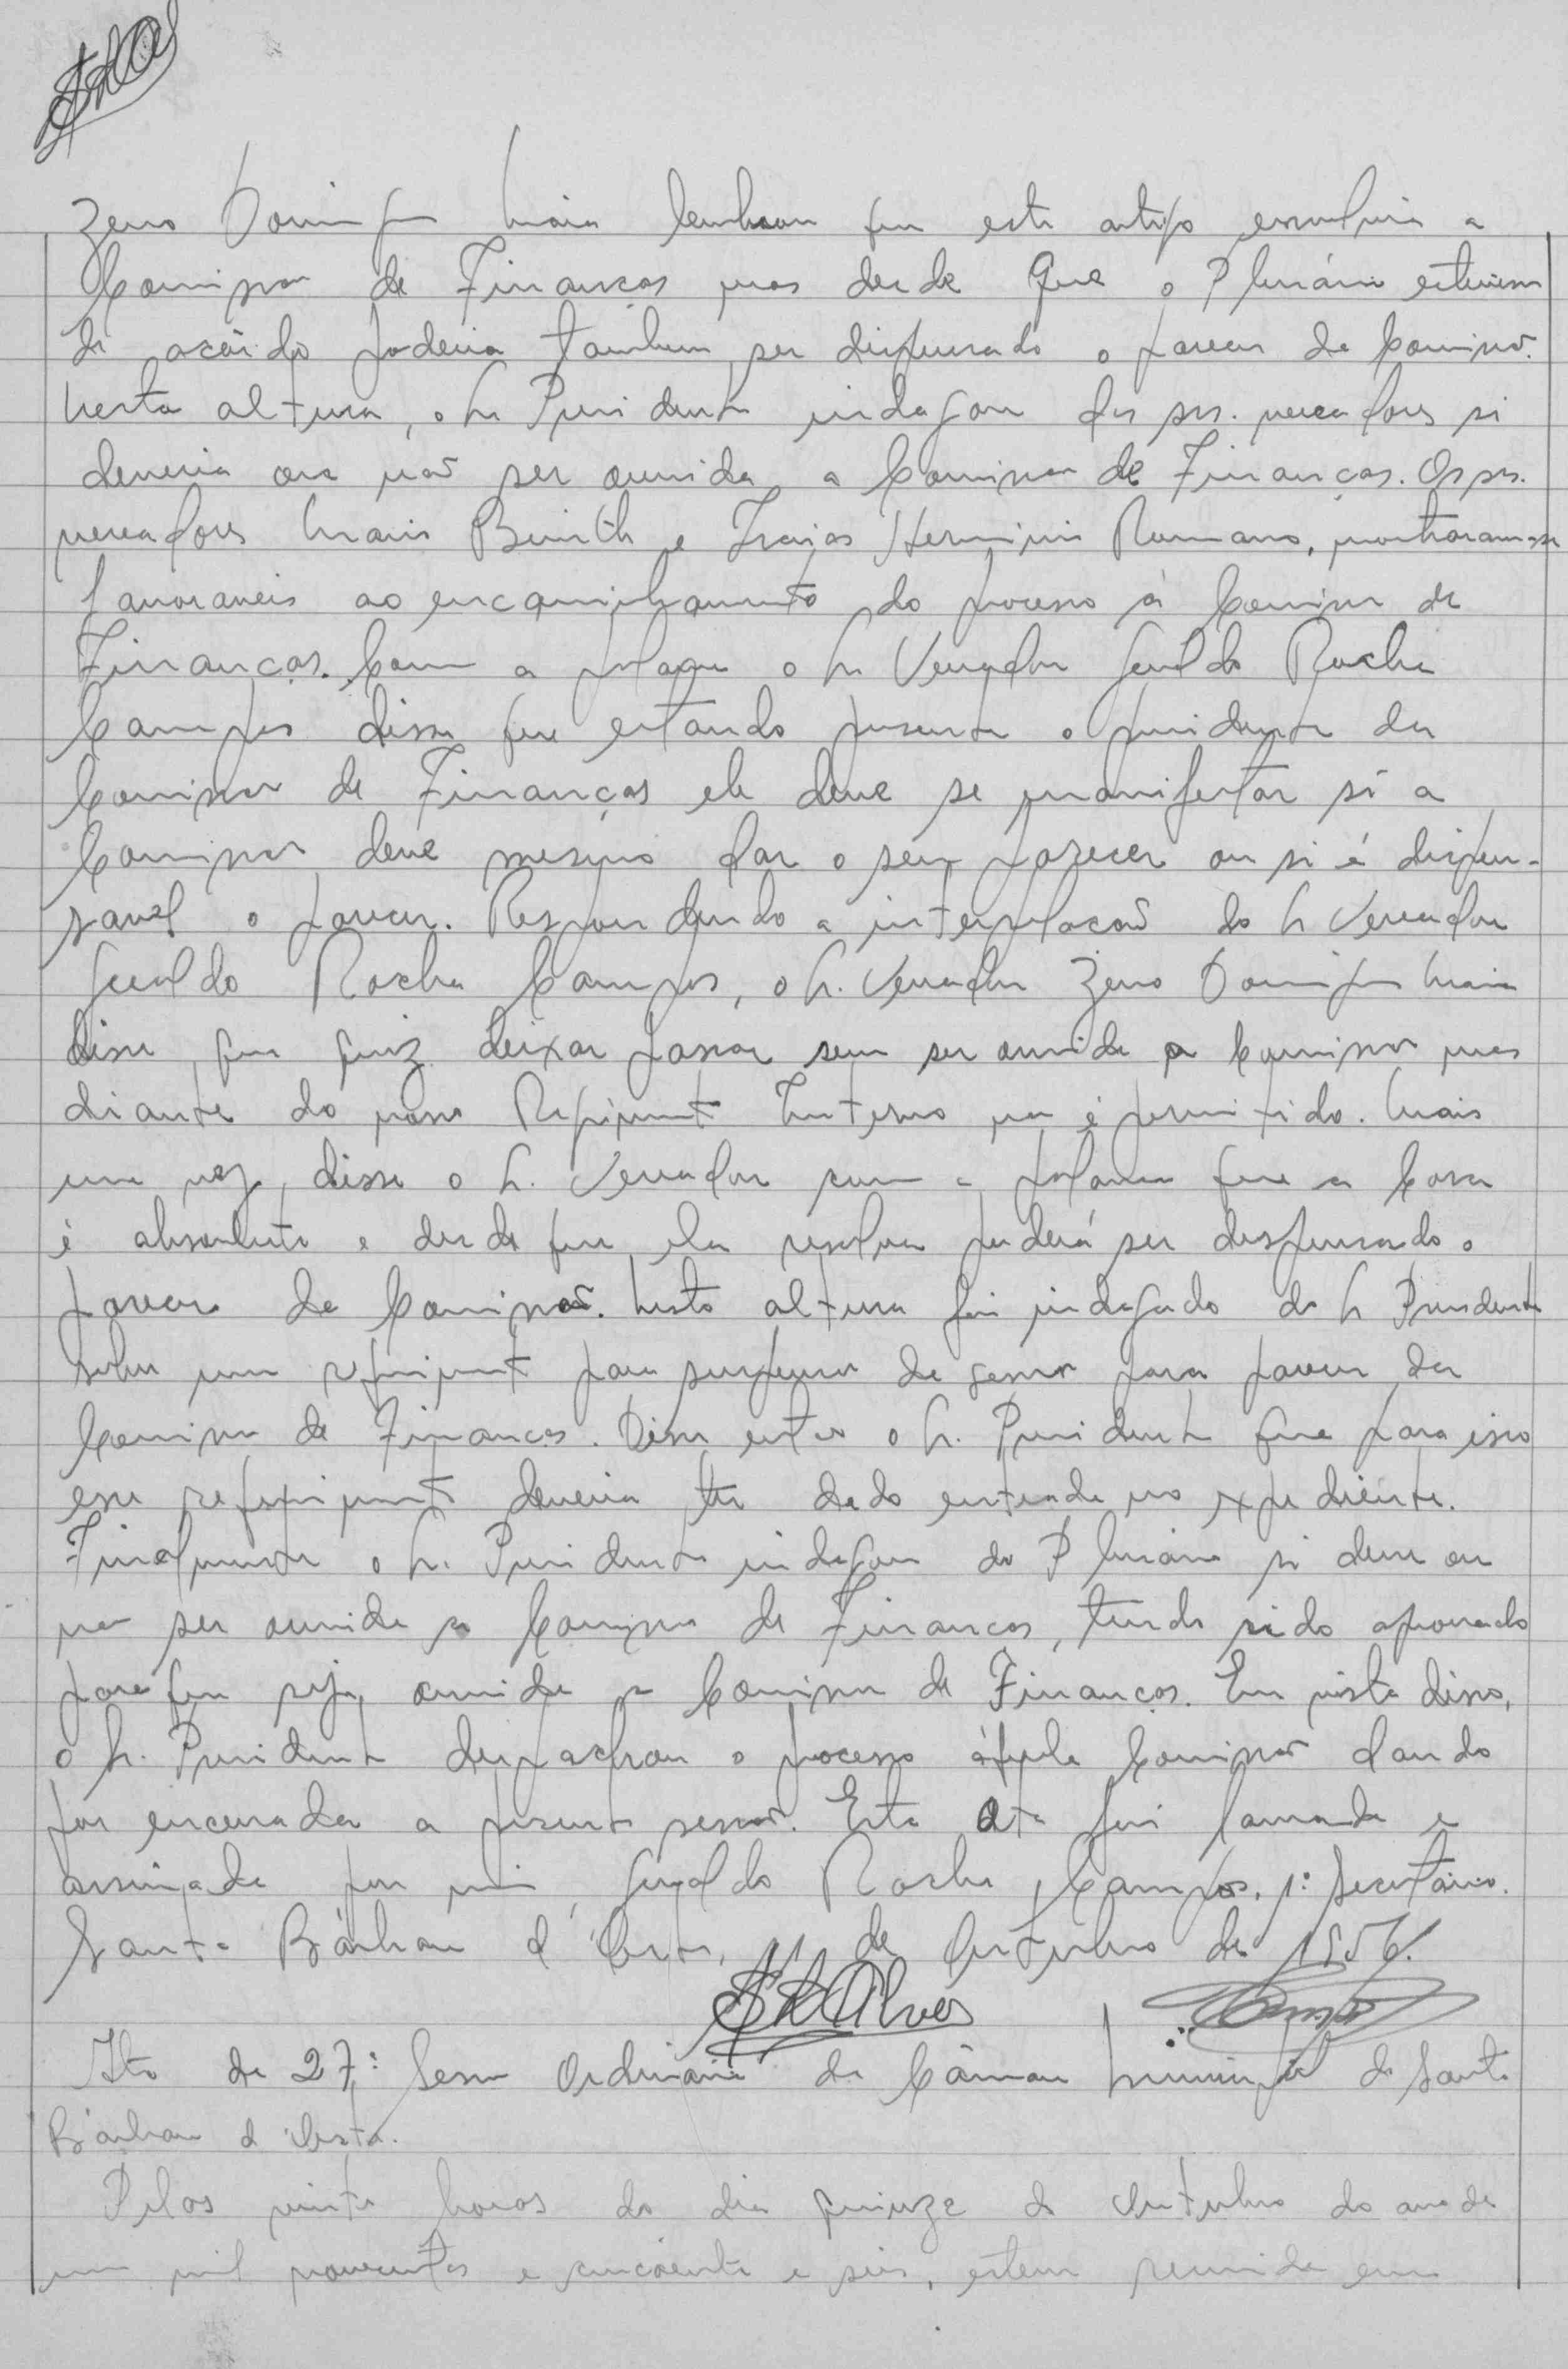 Zeno Domingos Maia lembrou que este artigo envolvia a
Comissão de Finanças mas desde que o Plenário estivesse
de acôrdo poderia tambem ser dispensado o parecer da Comissão.
Nesta altura, o Sr Presidente indagou dos srs. vereadores si
deveria ou não ser ouvida a Comissão de Finanças. Os srs.
vereadores Mario Bruith e Izaias Herminio Romano, mostraram-se
favoraveis ao encaminhamento do processo à Comissão de
Finanças. Com a palavra o Sr Vereador Geraldo Rocha
Campos disse que estando presente o presidente da
Comissão de Finanças ele deve se manifestar si a
Comissão deve mesmo dar o seu parecer ou si é dispen-
savel o parecer. Respondendo a interpelação do Sr Vereador
Geraldo Rocha Campos, o Sr. Vereador Zeno Domingos Maia
disse que quiz deixar passar sem ser ouvida a Comissão mas
diante do nosso Regimento Interno não é permitido. Mais
uma vez, disse o Sr. Vereador com a palavra que a Casa
é absoluta e desde que ela resolva poderá ser dispensado o
parecer da Comissão. Nesta altura foi indagado do Sr Presidente
sobre um requerimento para suspensão da sessão para parecer da
Comissão de Finanças. Disse então o Sr. Presidente que para isso
esse requerimento deveria ter dado entrada no expediente.
Finalmente o Sr. Presidente indagou do Plenário si deve ou
não ser ouvida a Comissão de Finanças, tendo sido aprovado
para que seja ouvida a Comissão de Finanças. Em vista disso,
o Sr. Presidente despachou o processo àquela Comissão dando
por encerrada a presente sessão. Esta ata foi lavrada e
assinada por mim, Geraldo Rocha Campos, 1º Secretário.
Santa Bárbara d'Oeste, 11 de Outubro de 1956.
Alves Campos
Ata da 27ª Sessão Ordinária da Câmara Municipal de Santa
Bárbara d'Oeste.
Pelas vinte horas do dia quinze de Outubro do ano de
um mil novecentos e cincoenta e seis, esteve reunida em